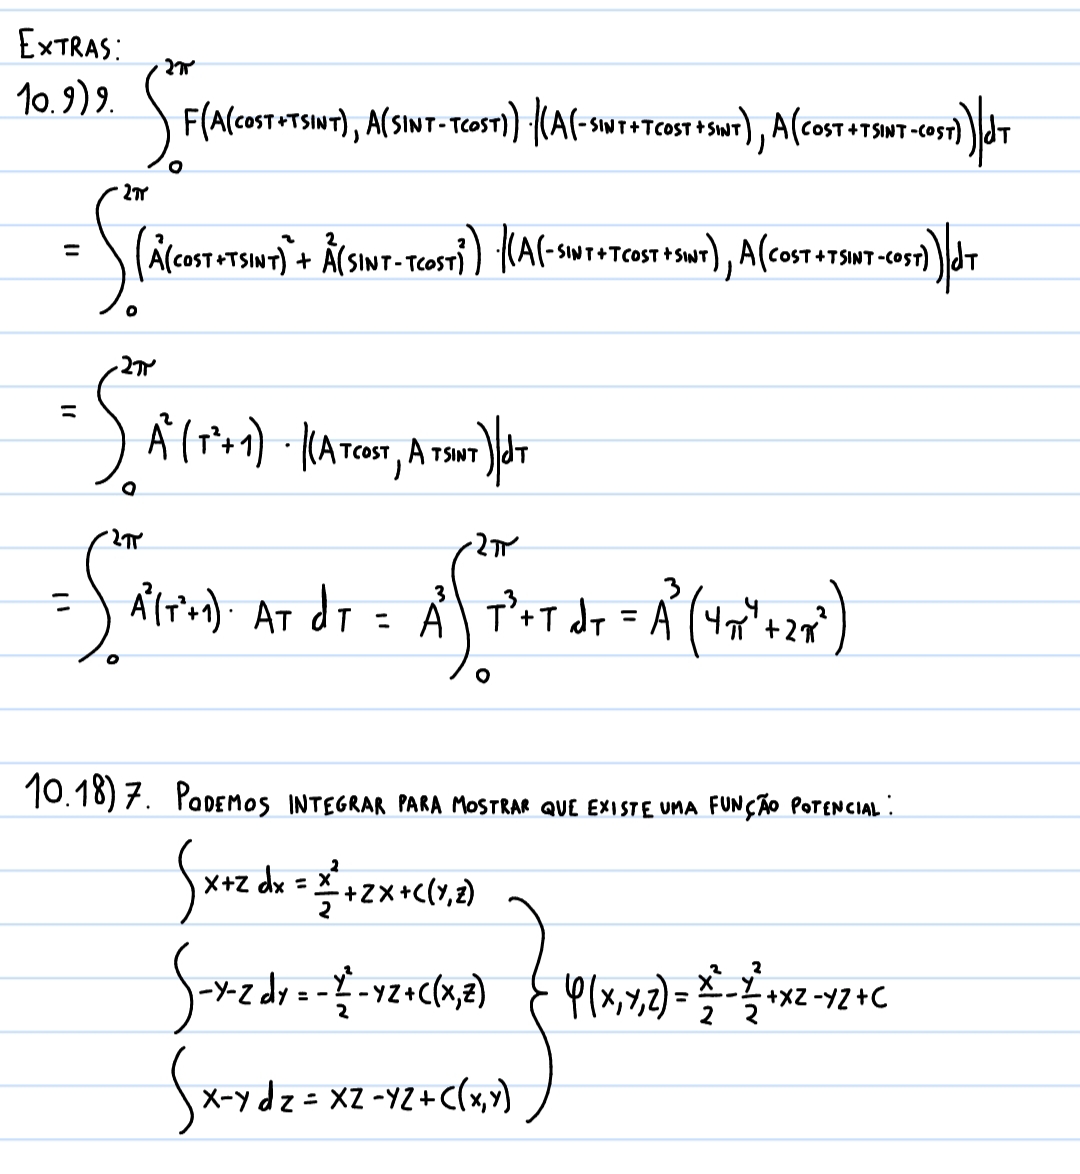 EXTRAS:
10.9) 9. ∫₀^{2π} F(A(COST+TSINT), A(SINT-TCOST)) · |(A(-SINT+TCOST+SINT), A(COST+TSINT-COST))| dT
= ∫₀^{2π} (A²(COST+TSINT)² + A²(SINT-TCOST)²) · |(A(-SINT+TCOST+SINT), A(COST+TSINT-COST))| dT
= ∫₀^{2π} A²(T²+1) · |(ATCOST, ATSINT)| dT
= ∫₀^{2π} A²(T²+1) · AT dT = A³ ∫₀^{2π} T³+T dT = A³(4π⁴+2π²)
10.18) 7. PODEMOS INTEGRAR PARA MOSTRAR QUE EXISTE UMA FUNÇÃO POTENCIAL:
∫ x+z dx = x²/2 + zx + C(y,z)
∫ -y-z dy = -y²/2 - yz + C(x,z) } φ(x,y,z) = x²/2 - y²/2 + xz - yz + C
∫ x-y dz = xz - yz + C(x,y)